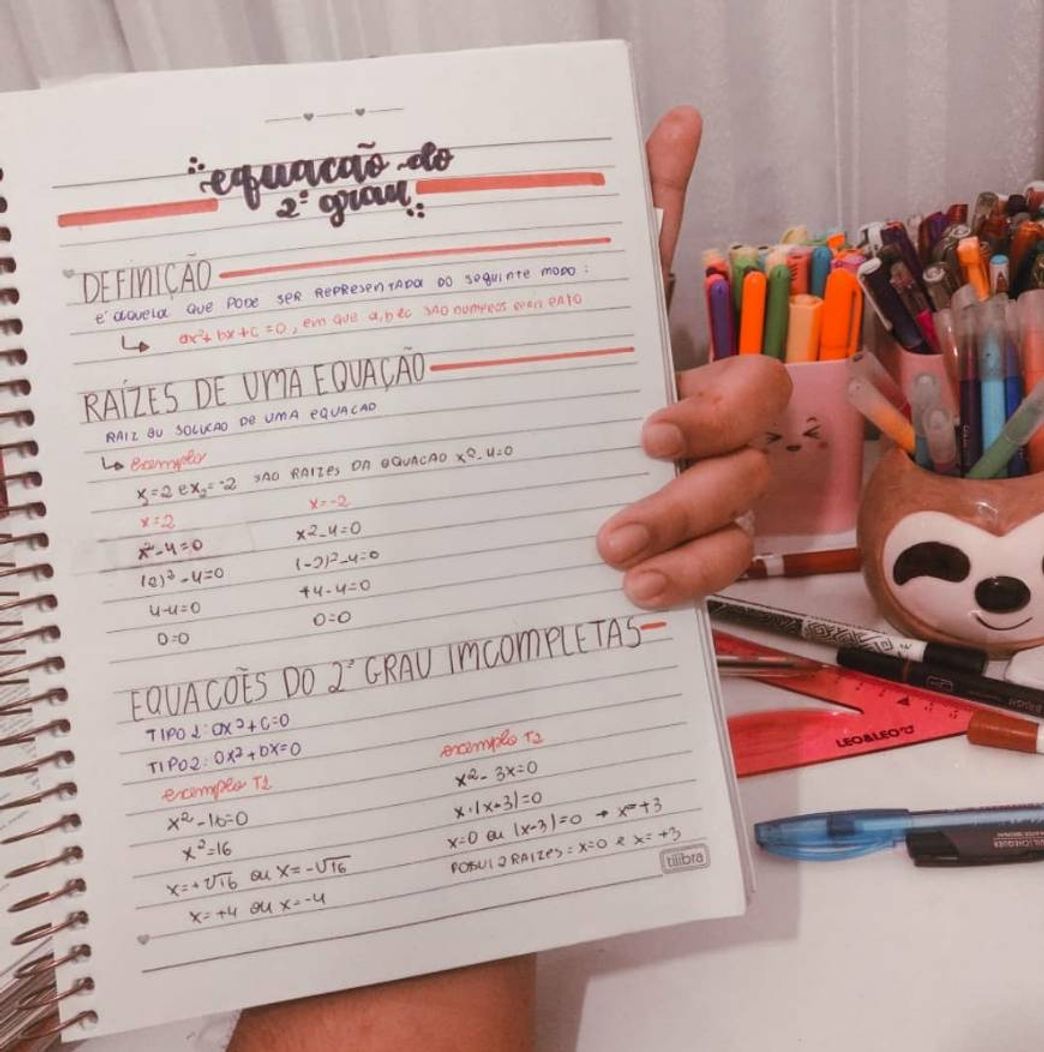 equação do
2º grau
DEFINIÇÃO
é aquela que pode ser representada do seguinte modo:
ax²+bx+c=0, em que a,b e c são números reais e a≠0
RAÍZES DE UMA EQUAÇÃO
RAIZ OU SOLUCAO DE UMA EQUACAO
exemplo
x₁=2 e x₂=-2 SAO RAIZES DA EQUACAO x²-4=0
x=2 x=-2
x²-4=0 x²-4=0
(2)²-4=0 (-2)²-4=0
4-4=0 +4-4=0
0=0 0=0
EQUACOES DO 2º GRAU IMCOMPLETAS
TIPO 1: ax²+c=0
TIPO 2: ax²+bx=0
exemplo T1 exemplo T2
x²-16=0 x²-3x=0
x²=16 x·(x-3)=0
x=+√16 ou x=-√16 x=0 ou (x-3)=0 → x=+3
x=+4 ou x=-4 POSSUI 2 RAIZES: x=0 e x=+3
tilibra
LEO&LEO